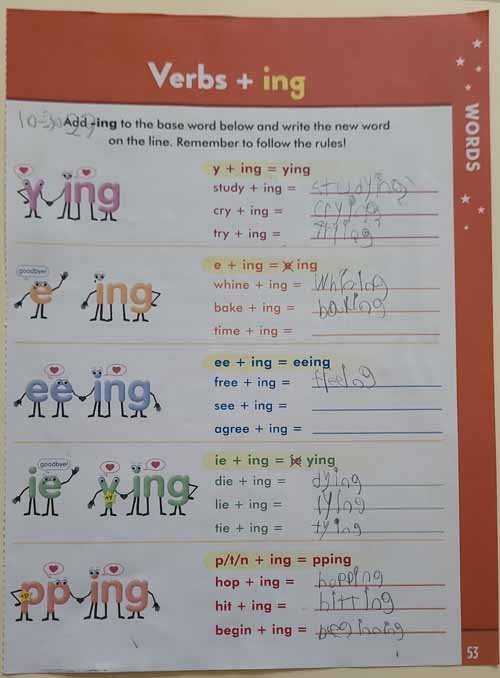 Verbs + ing
Add -ing to the base word below and write the new word
on the line. Remember to follow the rules!
WORDS
y ing
y + ing = ying
study + ing = studying
cry + ing = crying
try + ing = trying
goodbye!
e ing
e + ing = e ing
whine + ing = Whining
bake + ing = baking
time + ing =
ee ing
ee + ing = eeing
free + ing =
see + ing =
agree + ing =
goodbye!
ie y ing
ie + ing = ie ying
die + ing = dying
lie + ing = lying
tie + ing = tying
pp ing
p/t/n + ing = pping
hop + ing = hopping
hit + ing = hitting
begin + ing =
53